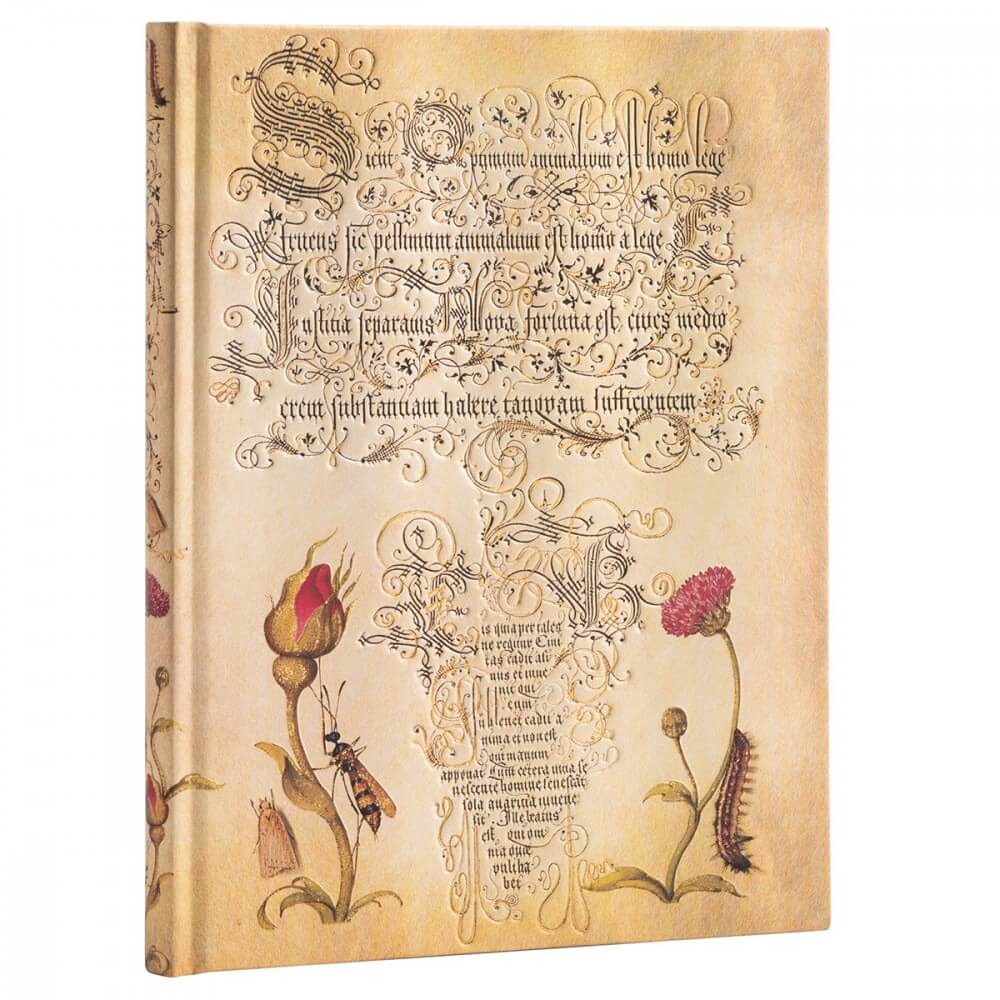 Sicut Optimum animalium est homo lege
fruens sic pessimum animalium est homo a lege Et
Iustitia separatus Nova fortuna est, cives medio
crem substantiam habere tanquam sufficientem
is quia per tales
ne regitur Civi
tas cadit asi
nus et inue
nit qui
eum
Subleuet cadit a
nima et non est
qui manum
apponat Sunt cetera uitia se
nescente homine senescāt
sola auaritia iuuene
sit Ille beatus
est qui om
nia quæ
uult ha
bet